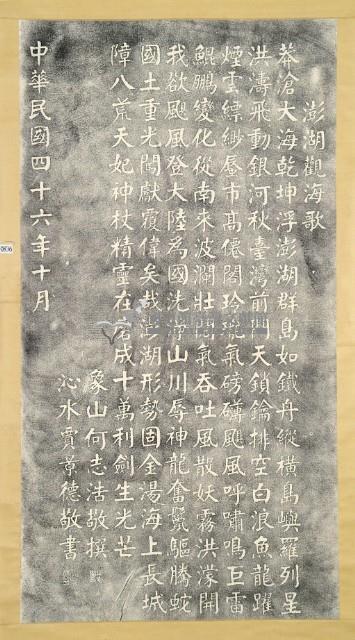 澎湖觀海歌
莽滄大海乾坤浮澎湖群島如鐵舟縱橫島嶼羅列星
洪濤飛動銀河秋臺灣前門天鎖鑰排空白浪魚龍躍
煙雲縹緲蜃市高僊閣玲瓏氣磅礡颶風呼嘯鳴巨雷
鯤鵬變化從南來波瀾壯闊氣吞吐風散妖霧洪濛開
我欲颶風登大陸為國洗淨山川辱神龍奮鬣驅騰蛇
國土重光閩獻覆偉矣哉澎湖形勢固金湯海上長城
障八荒天妃神杖精靈在磨成十萬利劍生光芒
象山何志浩敬撰
沁水賈景德敬書
中華民國四十六年十月
0836